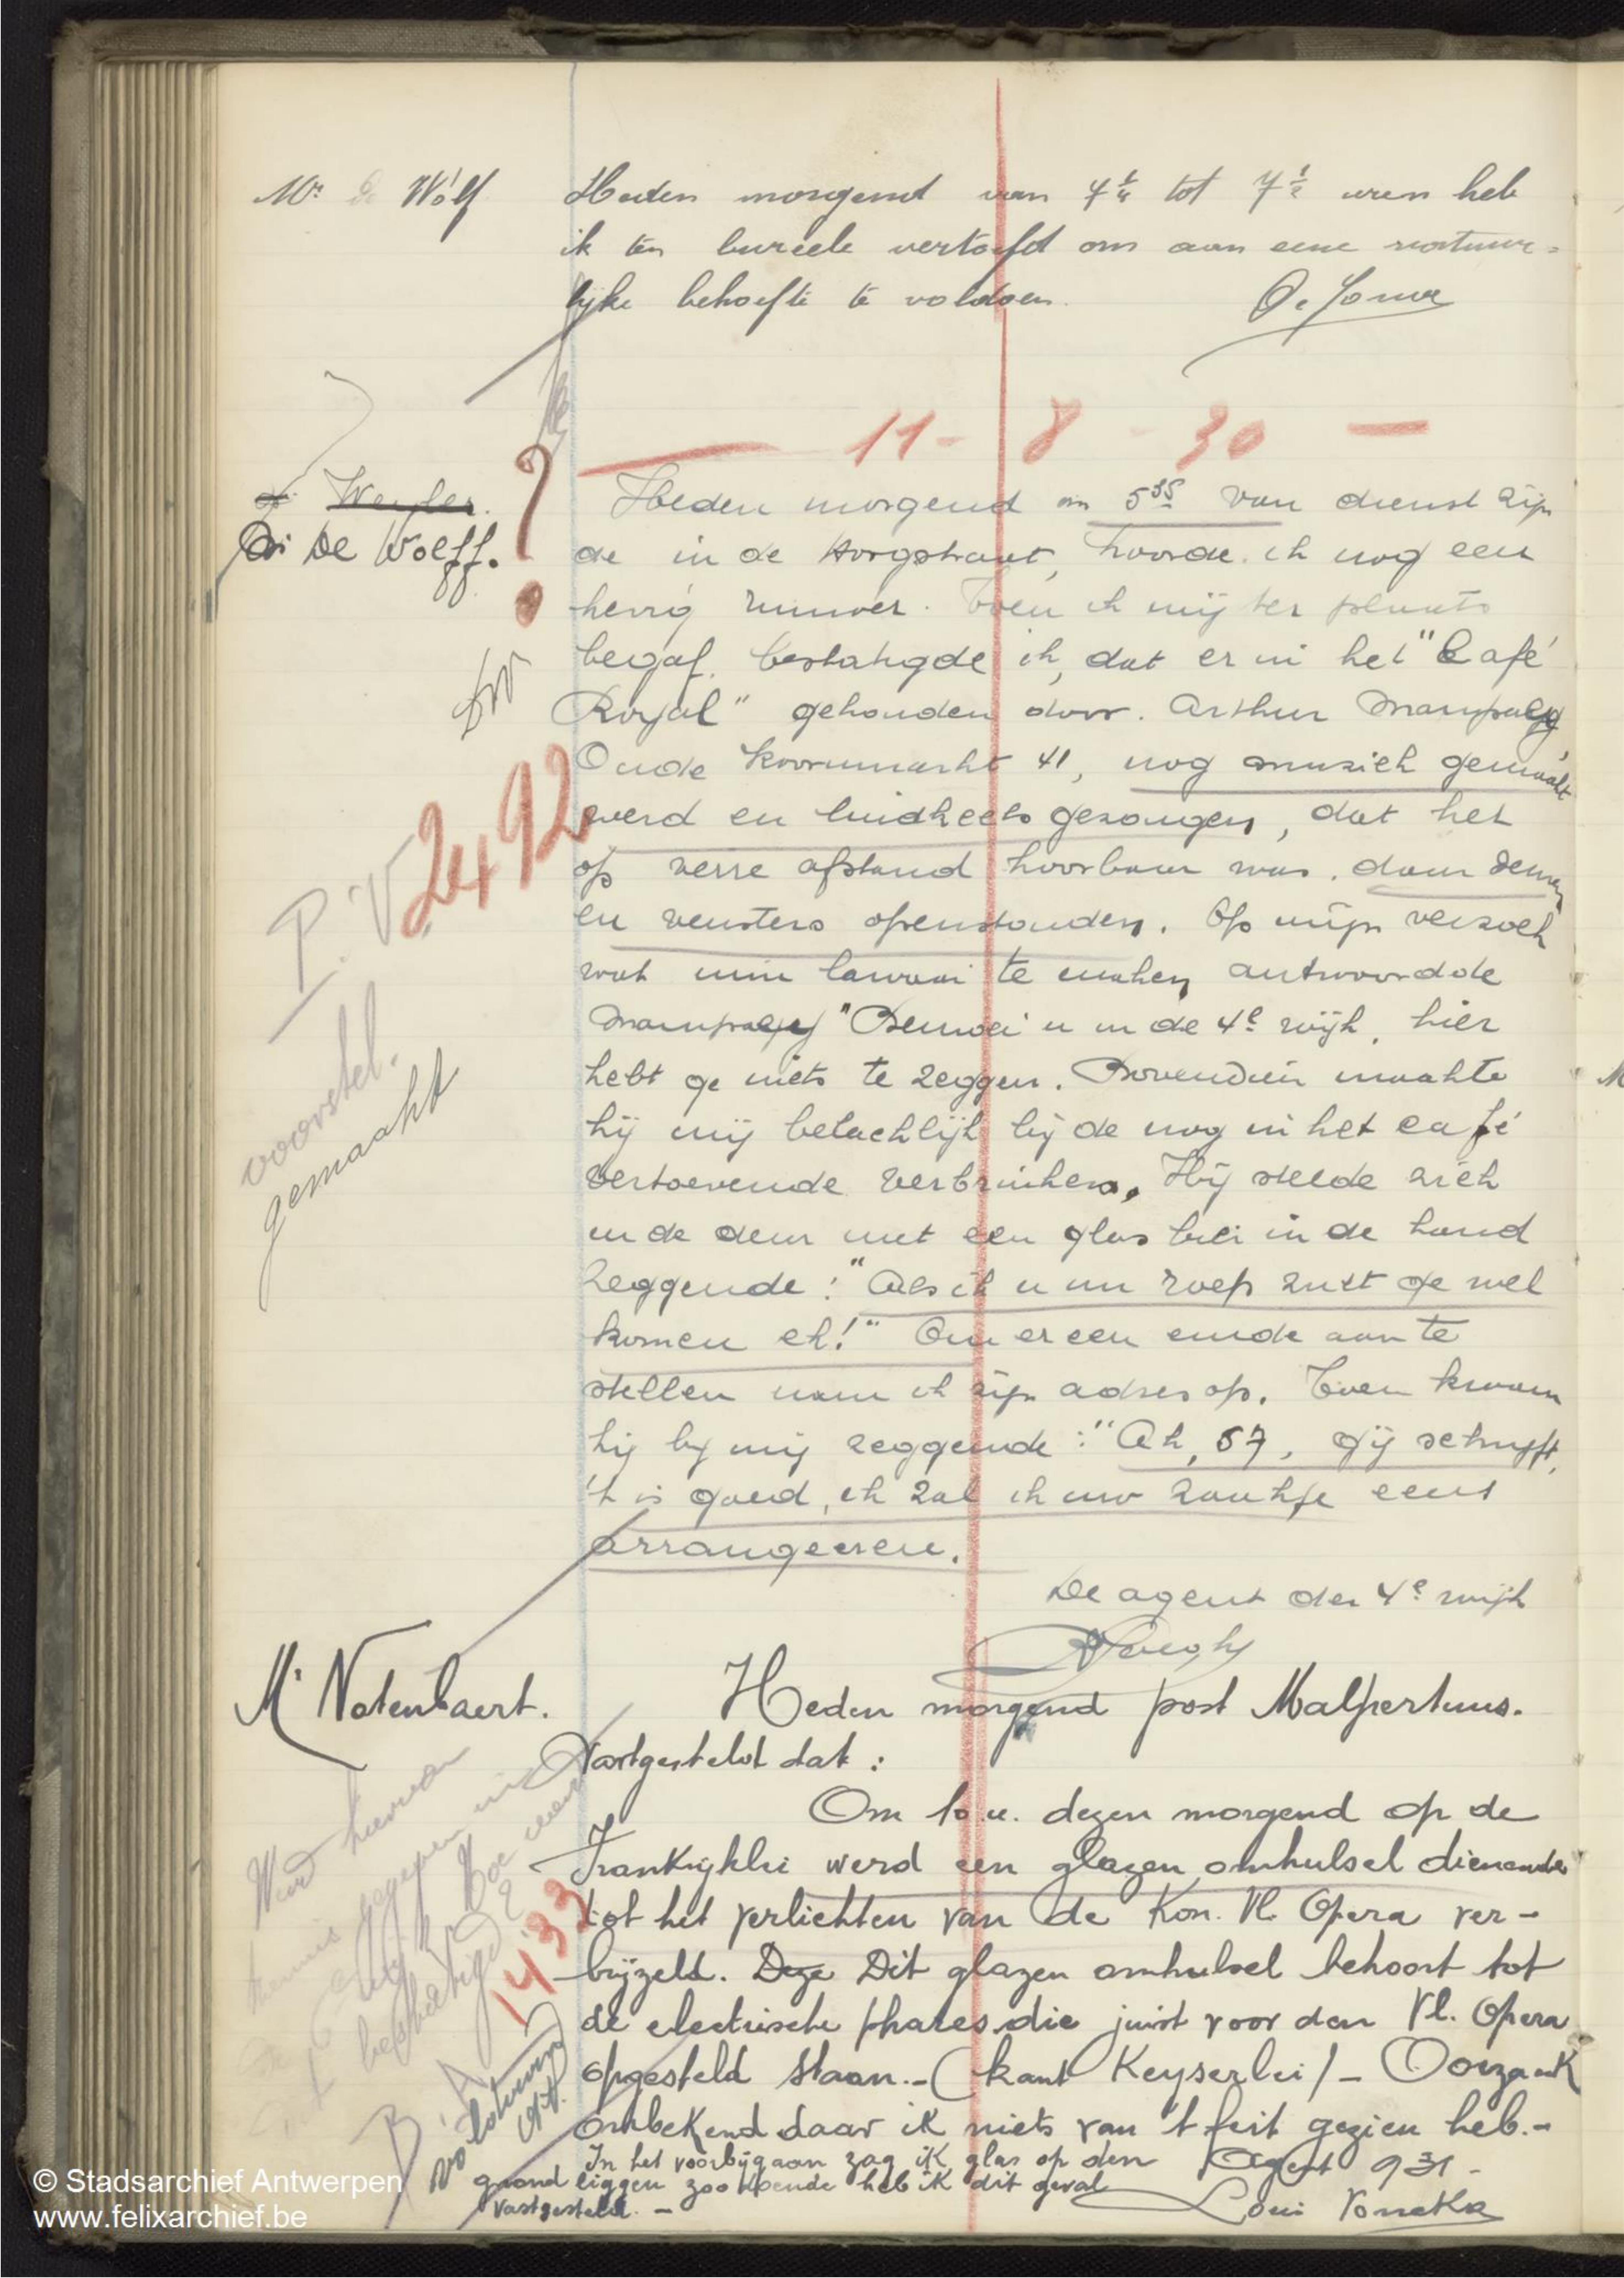 Mr De Wolf
Heden morgend van 7 1/4 tot 7 1/2 uren heb
ik ten bureele vertoefd om aan eene natuur=
lijke behoefte te voldoen.
11 - 8 - 30 -
Weyler.
De Wolff.
?
Heden morgend om 5 35 van dienst zijn
de in de Torgstraat, hoorde ik nog een
hevig rumoer. Toen ik mij ter plaats
begaf, bestatigde ik, dat er in het "Café
Royal" gehouden door Arthur
Oude Koornmarkt 41, nog muziek gemaakt
werd en luidkeels gezongen, dat het
op verre afstand hoorbaar was, daar deuren
en vensters openstonden. Op mijn verzoek
wat min lawaai te maken antwoordde
"Bemoei u in de 4e wijk, hier
hebt ge niets te zeggen. Bovendien maakte
hij mij belachlijk bij de nog in het café
vertoevende verbruikers. Hij stelde zich
in de deur met een glas bier in de hand
zeggende: "Als ik u nu roep zult ge wel
komen eh!" Om er een einde aan te
stellen nam ik zijn adres op. Toen kwam
hij bij mij zeggende: "Ah, 57, gij schrijft,
't is goed, ik zal ik uw zaakje eens
arrangeeren.
De agent der 4e wijk
P.V. 2492
voorstel.
gemaakt
Mr Notenbaert.
Heden morgend post Malpertuus.
Vastgesteld dat:
Om 10 u. dezen morgend op de
Frankrijklei werd een glazen omhulsel dienende
tot het verlichten van de Kon. Vl. Opera ver-
brijzeld. Deze Dit glazen omhulsel behoort tot
de electrische phares die juist voor den Vl. Opera
opgesteld staan.- (kant Keyserlei) - Oorzaak
onbekend daar ik niets van 't feit gezien heb.-
In het voorbijgaan zag ik glas op den
grond liggen zoodoende heb ik dit geval
vastgesteld. -
Agent 931 -
Louis
Werd hiervan
kennis gegeven
1433
© Stadsarchief Antwerpen
www.felixarchief.be